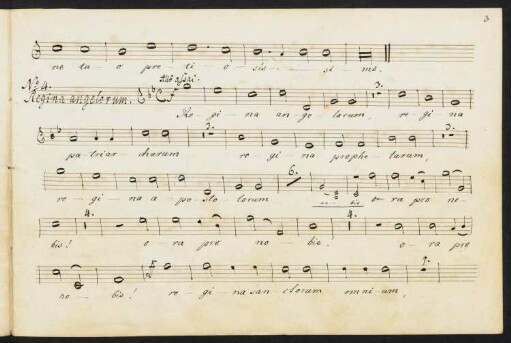 3
ne tu - o pre - ti - o - sis - si - mo.
No 4.
Regina angelorum.
Re - gi - na an - ge - lorum, re - gi - na
3.
pa - triar - charum re - gi - na prophe - tarum,
3. 3.
re - gi - na a - po - sto - lorum o - ra pro no -
6.
bis! o - ra pro no - bis! o - ra pro
4. 4.
no - bis! re - gi - na san - ctorum omnium,
1.